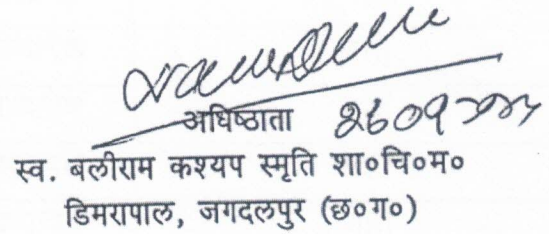 अधिष्ठाता
स्व. बलीराम कश्यप स्मृति शा०चि०म०
डिमरापाल, जगदलपुर (छ०ग०)